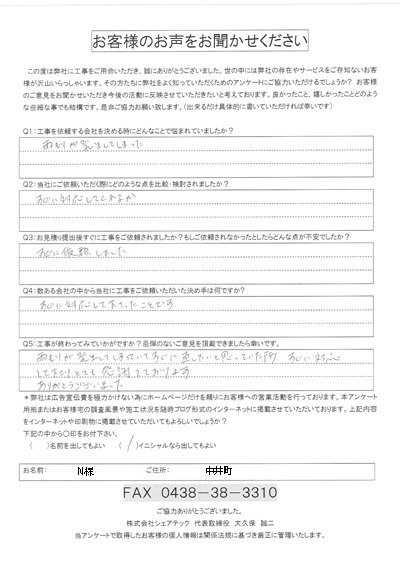 お客様のお声をお聞かせください
この度は弊社に工事をご用命いただき、誠にありがとうございました。世の中には弊社の存在やサービスをご存知ないお客
様が沢山いらっしゃいます。その方たちに弊社をよく知っていただくためのアンケートにご協力いただけるでしょうか？ お客様
のご意見をお聞かせいただき今後の活動に反映させていただきたいと考えております。良かったこと、嬉しかったことどのよう
な些細な事でも結構です。是非ご協力お願い致します。（出来るだけ具体的に書いていただければ幸いです）
Q1:工事を依頼する会社を決める時にどんなことで悩まれていましたか？
雨もりが発生してしまった
Q2:当社にご依頼いただく際にどのような点を比較・検討されましたか？
すぐに対応してくれるか
Q3:お見積り提出後すぐに工事をご依頼されましたか？もしご依頼されなかったとしたらどんな点が不安でしたか？
すぐに依頼しました
Q4:数ある会社の中から当社に工事をご依頼いただいた決め手は何ですか？
すぐに対応して下さったことです
Q5:工事が終わってみていかがですか？忌憚のないご意見を頂戴できましたら幸いです。
雨もりが発生してしまっていてすぐに直したいと思っていた所、すぐに対応
して下さりとても感謝しております
ありがとうございました
＊弊社は広告宣伝費を極力かけない為にホームページだけを頼りにお客様への営業活動を行っております。本アンケート
用紙またはお客様宅の調査風景や施工状況を随時ブログ形式のインターネットに掲載させていただいております。上記内容
をインターネットや印刷物に掲載させていただいてもよろしいでしょうか？
下記の中から〇印をお付下さい。
（ ）名前を出してもよい （/）イニシャルなら出してもよい
お名前: N様 ご住所: 中井町
FAX 0438-38-3310
ご協力ありがとうございました。
株式会社シェアテック 代表取締役 大久保 誠二
当アンケートで取得したお客様の個人情報は関係法規に基づき厳正に管理いたします。